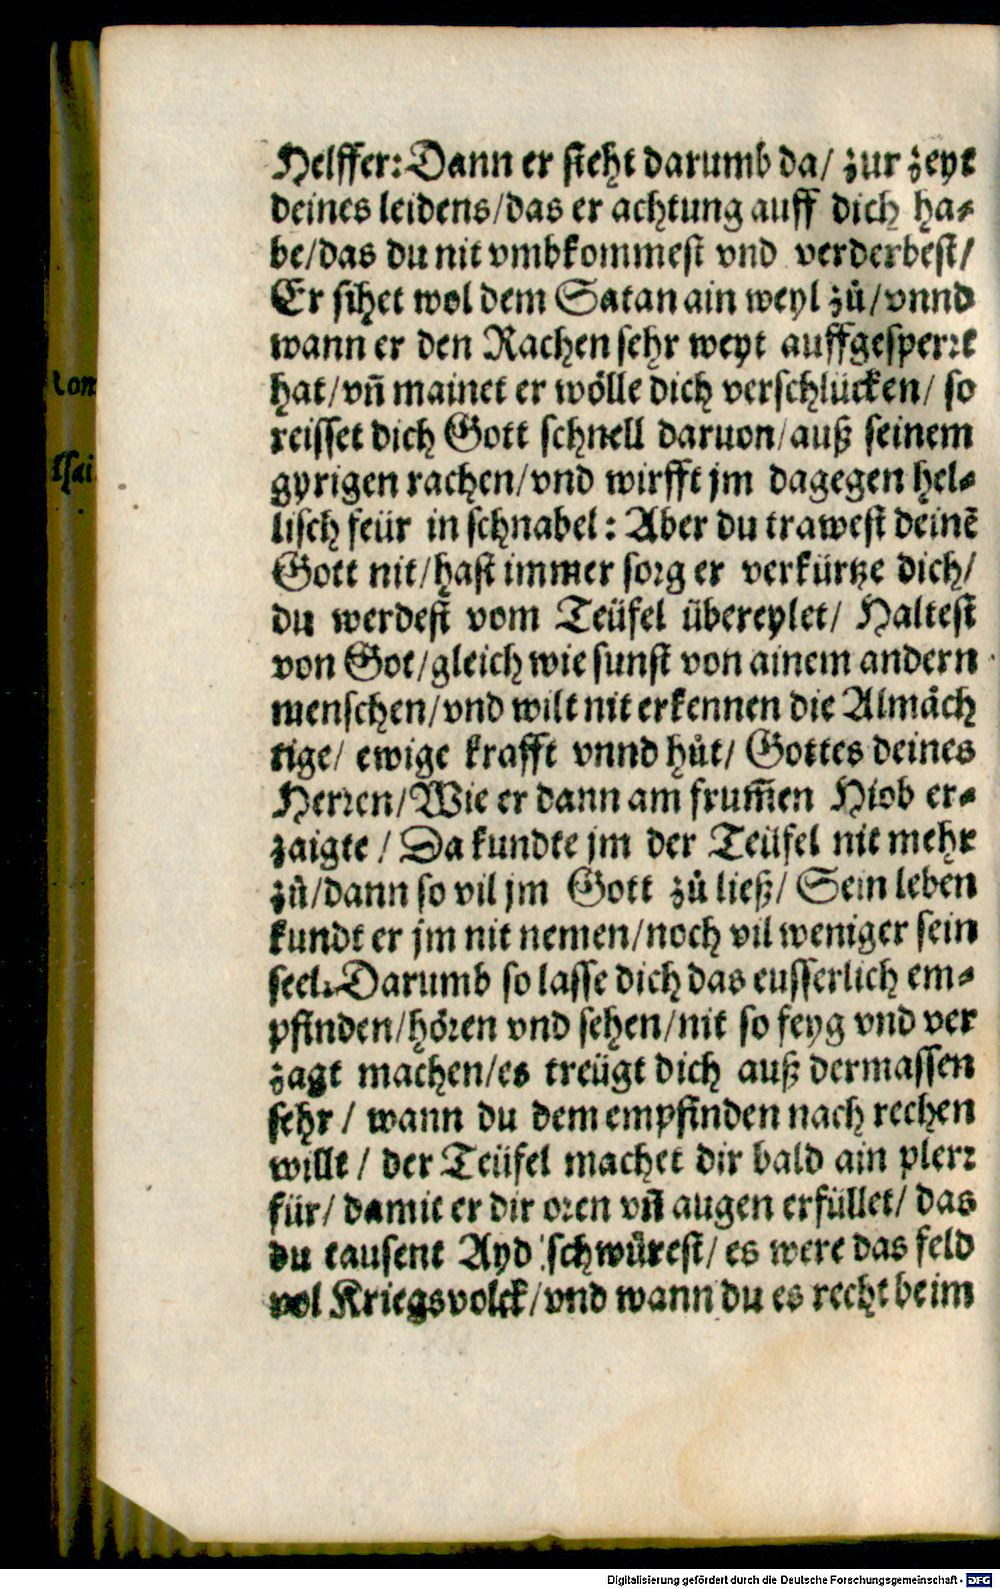 Helffer: Dann er steht darumb da/ zur zeyt
deines leidens/das er achtung auff dich ha⸗
be/das du nit vmbkommest vnd verderbest/
Er sihet wol dem Satan ain weyl zů/vnnd
wann er den Rachen sehr weyt auffgesperrt
hat/vñ mainet er wölle dich verschlücken/ so
reisset dich Gott schnell daruon/auß seinem
gyrigen rachen/vnd wirfft jm dagegen hel⸗
lisch feür in schnabel: Aber du trawest deinē
Gott nit/hast immer sorg er verkürtze dich/
du werdest vom Teüfel übereylet/ Haltest
von Got/gleich wie sunst von ainem andern
menschen/vnd wilt nit erkennen die Almäch
tige/ ewige krafft vnnd hůt/ Gottes deines
Herren/Wie er dann am frum̃en Hiob er⸗
zaigte/ Da kundte jm der Teüfel nit mehr
zů/dann so vil jm Gott zů ließ/ Sein leben
kundt er jm nit nemen/noch vil weniger sein
seel. Darumb so lasse dich das eusserlich em⸗
pfinden/hören vnd sehen/nit so feyg vnd ver
zagt machen/es treügt dich auß dermassen
sehr/ wann du dem empfinden nach rechen
willt/ der Teüfel machet dir bald ain plerr
für/ damit er dir oren vñ augen erfüllet/ das
du tausent Ayd schwürest/ es were das feld
vol Kriegsvolck/vnd wann du es recht beim
tom
Esai
Digitalisierung gefördert durch die Deutsche Forschungsgemeinschaft - DFG